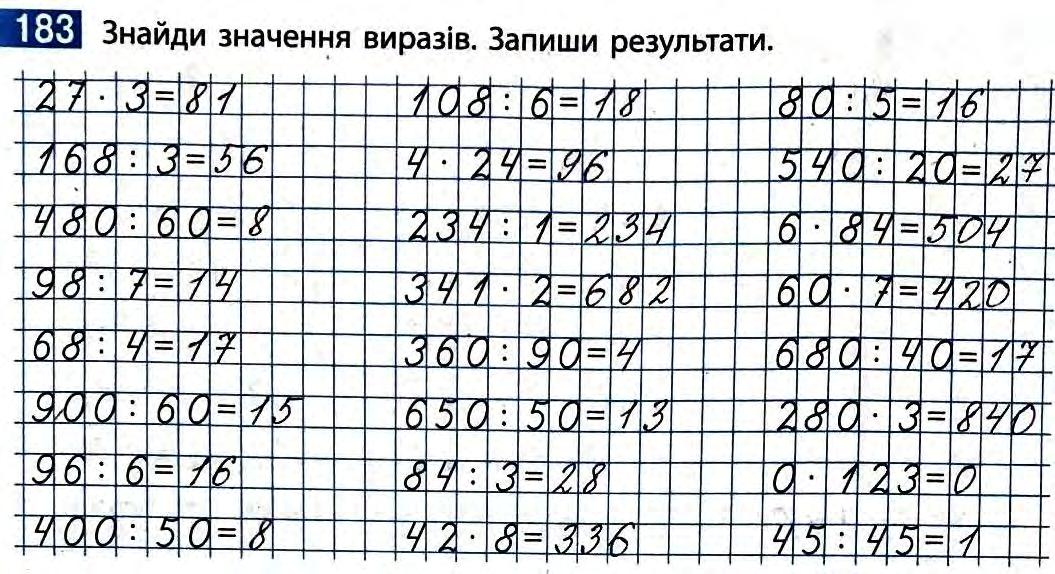 183 Знайди значення виразів. Запиши результати.
27 · 3 = 81 108 : 6 = 18 80 : 5 = 16
168 : 3 = 56 4 · 24 = 96 540 : 20 = 27
480 : 60 = 8 234 : 1 = 234 6 · 84 = 504
98 : 7 = 14 341 · 2 = 682 60 · 7 = 420
68 : 4 = 17 360 : 90 = 4 680 : 40 = 17
900 : 60 = 15 650 : 50 = 13 280 · 3 = 840
96 : 6 = 16 84 : 3 = 28 0 · 123 = 0
400 : 50 = 8 42 · 8 = 336 45 : 45 = 1